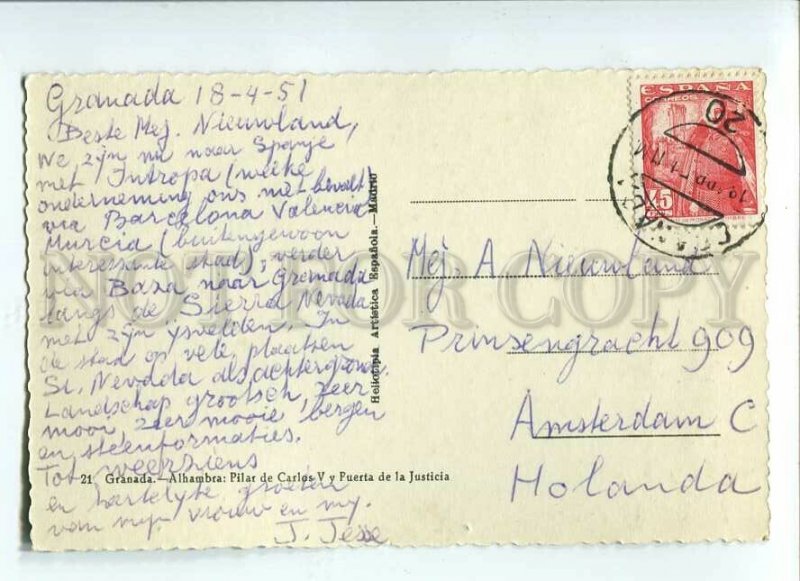 Granada 18-4-51
Beste Mej. Nieuwland,
We zijn nu naar Spanje
met Intropa (welke
onderneming ons niet bevalt)
via Barcelona Valencia
Murcia (buitengewoon
interessante stad), verder
via Baza naar Granada
langs de Sierra Nevada
met zijn ysvelden. In
de stad op vele plaatsen
Si. Nevadda als achtergrond.
Landschap grootsch, zeer
mooi, zeer mooie bergen
en steenformaties.
Tot weerziens
en hartelyke groeten
van mijn vrouw en my.
J. Jesse
21 Granada.—Alhambra: Pilar de Carlos V y Puerta de la Justicia
Heliotipia Artística Española.—Madrid
ESPAÑA
CORREOS
45
CTS
20
Mej. A. Nieuwland
Prinsengracht 909
Amsterdam C
Holanda
NOT FOR COPY